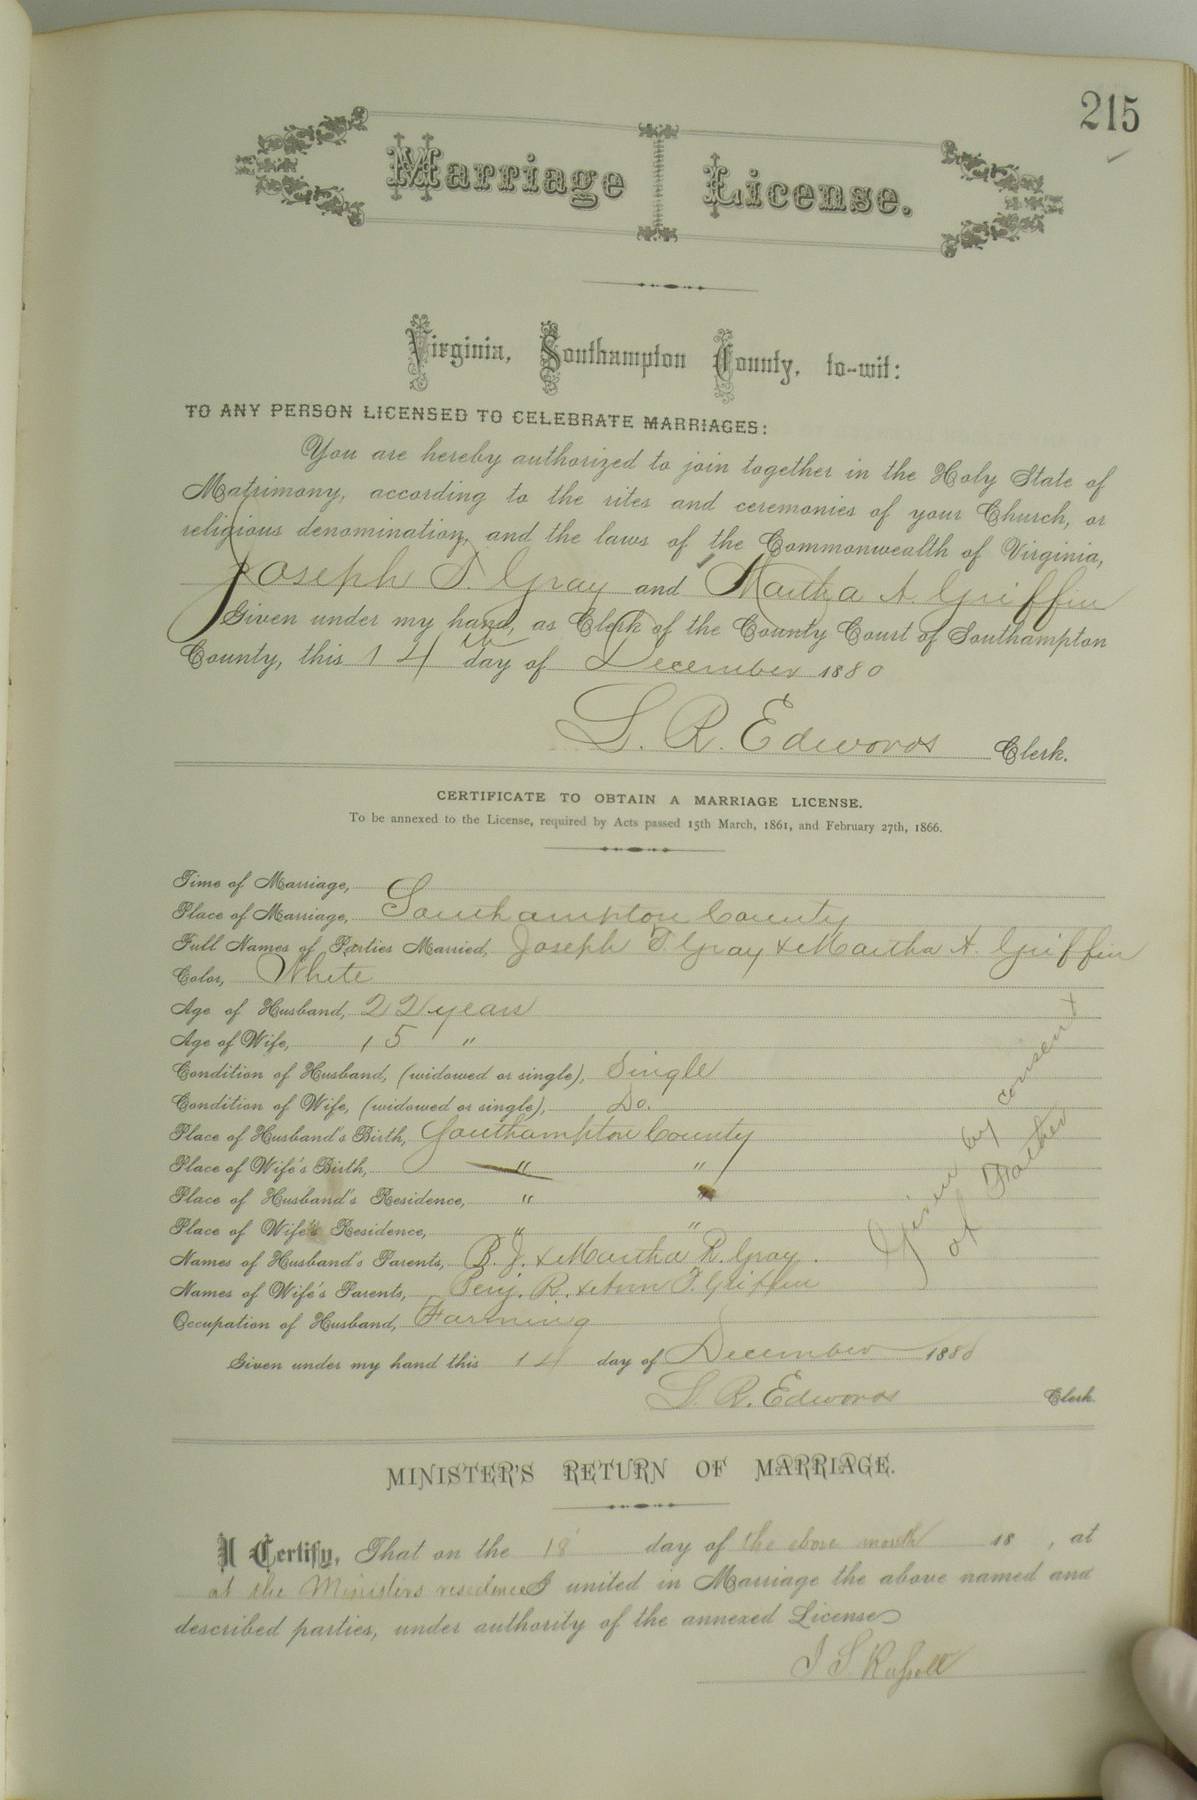 215
Marriage License.
Virginia, Southampton County, to-wit:
TO ANY PERSON LICENSED TO CELEBRATE MARRIAGES:
You are hereby authorized to join together in the Holy State of
Matrimony, according to the rites and ceremonies of your Church, or
religious denomination, and the laws of the Commonwealth of Virginia,
Joseph T. Gray and Martha A. Griffin
Given under my hand, as Clerk of the County Court of Southampton
County, this 14th day of December 1880
L. R. Edwards Clerk.
CERTIFICATE TO OBTAIN A MARRIAGE LICENSE.
To be annexed to the License, required by Acts passed 15th March, 1861, and February 27th, 1866.
Time of Marriage,
Place of Marriage, Southampton County
Full Names of Parties Married, Joseph T. Gray & Martha A. Griffin
Color, White
Age of Husband, 22 years
Age of Wife, 15 "
Condition of Husband, (widowed or single), Single
Condition of Wife, (widowed or single), Do.
Place of Husband's Birth, Southampton County
Place of Wife's Birth, " "
Place of Husband's Residence, " "
Place of Wife's Residence, " "
Names of Husband's Parents, B. J. & Martha R. Gray.
Names of Wife's Parents, Benj. R. & Ann T. Griffin
Occupation of Husband, Farming
Given by consent
of Father
Given under my hand this 14 day of December 1880
L. R. Edwards Clerk.
MINISTER'S RETURN OF MARRIAGE.
I Certify, That on the 18 day of the above month 18 , at
at the Ministers residence I united in Marriage the above named and
described parties, under authority of the annexed License